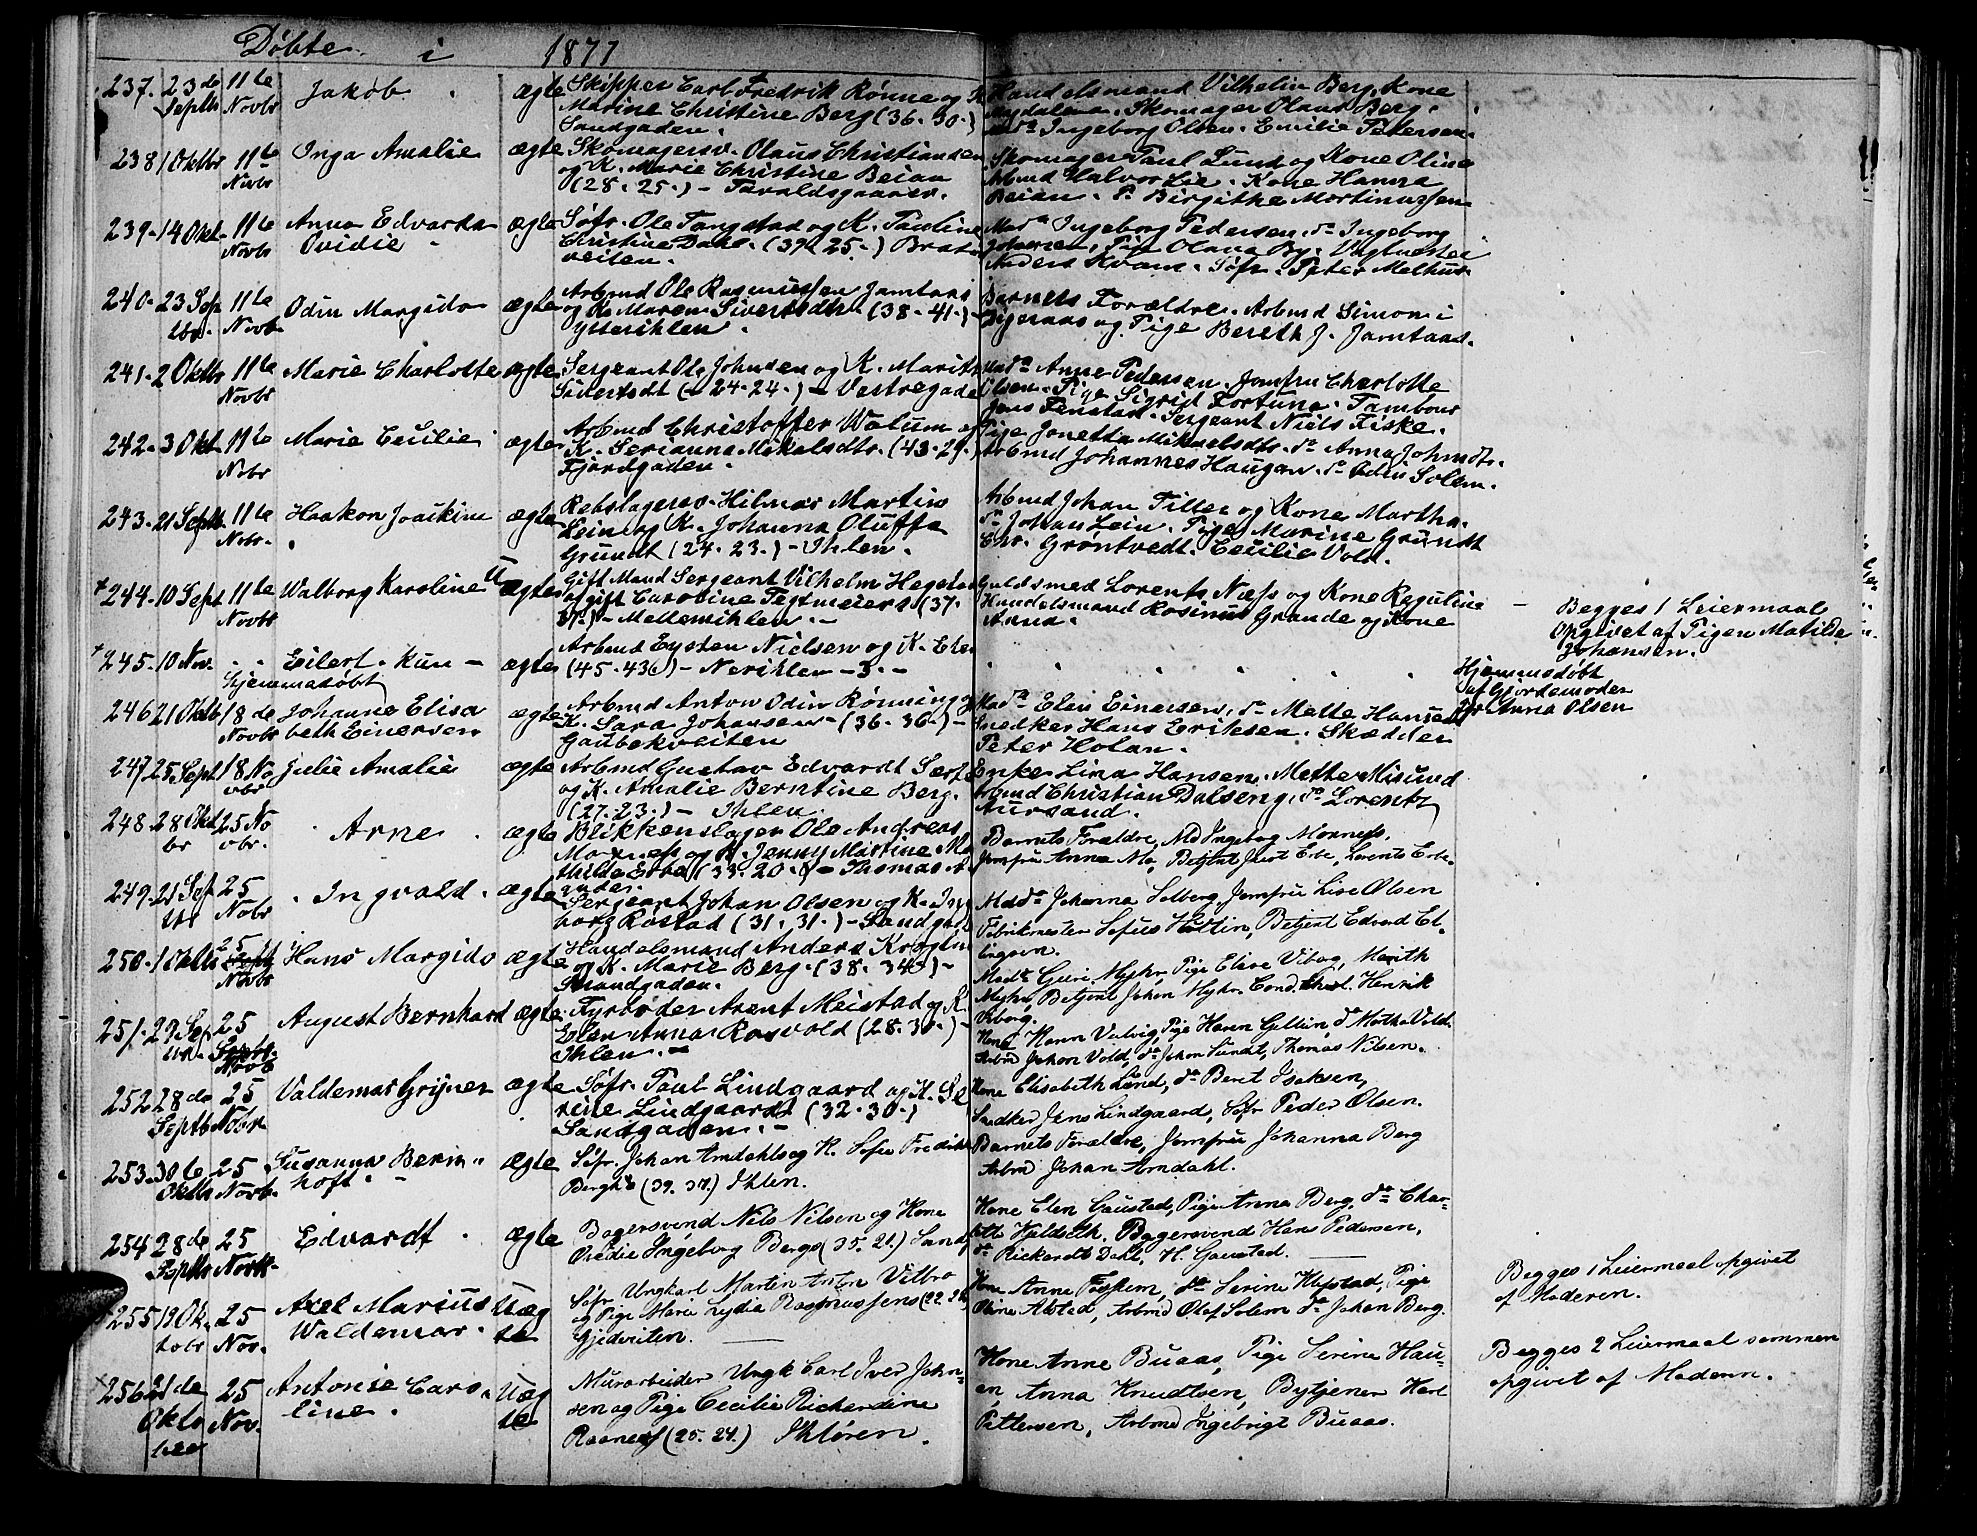 Døbte i 1877
237. 23de Septbr 11te Novbr Jakob. ægte Skipper Carl Fredrik Rønne og K. Marine Christine Berg (36. 30.) Sandgaden. Handelsmand Vilhelm Berg, Kone Magdalena. Skomager Olaus Berg. Mdª Ingeborg Olsen. Emilie Petersen.
238 1 Oktbr 11te Novbr Inga Amalie ægte Skomagersv. Olaus Christiansen og K. Marie Christine Beian (28. 25.) – Taraldsgaarden. Skomager Paul Lund og Kone Oline Arbmd Halvor Lie. Kone Hanna Beian. P. Birgitha Mortinussen
239. 14 Okt. 11te Novbr Anna Edvarda Ovidie ægte Søfr. Ole Tangstad og K. Pauline Christine Dahl. (37. 25.) Bratveiten. Madª Ingeborg Pedersen. dº Ingeborg Johansen, Pige Olana By. Anders Kvam. Søfr. Peter Melhus.
240. 23 Septbr. 11te Novb Odin Margido ægte Arbmd Ole Rasmussen Jamtaas og K. Maren Sivertsdtr (38. 41.) – Ytterihlen. Barnets Forældre. Arbmd Simon Digeraas og Pige Bereth J. Jamtaas.
241. 2 Oktbr 11te Novbr Marie Charlotte ægte Sergeant Ol. Johnsen og K. Marith Sivertsdt (24. 24.) – Vestregade Madª Anne Pedersen. Jomfru Charlotte Olsen. Pige Sigrid Fortuna. Tambour Jens Fenstad. Sergeant Niels Fiske.
242. 3 Okt. 11te Nobr Marie Cecilie ægte Arbmd Christoffer Walum og K. Serianna Mikalsdtr. (43. 29.) Fjordgaden. Pige Jonetta Mikaelsdtr. dº Anna Johnsdtr. Arbmd Johannes Haugan. dº Odin Solem.
243. 21 Septb 11te Nobr. Haakon Joakim ægte Rebslagersv. Hilmar Martin Lein og K. Johanna Oluffa Grundt (24. 23.) – Ihlen. Arbmd Johan Tiller og Kone Martha. dº Johan Lein. Pige Marine Grundt Chr. Grøntvedt. Cecilie Vold.
+ 244. 10 Sept 11te Novbr Walborg Karoline U ægte Gift Mand Sergeant Vilhelm Hegstad og gift Caroline Tegtmeiers (37. 37.) – Mellemihlen. Guldsmed Lorents Næss og Kone Reguline Handelsmand Rosinus Grande og Kone Anna. – Begges 1 Leiermaal Opgivet af Pigen Matilde Johansen.
+ 245. 10 Nov. Eilert. kun – Hjemmedøbt ægte Arbmd Eysten Nielsen og K. Elen (45. 43.) – Nerihlen – 3. – Hjemmedøbt af Gjordemoder Fr Anna Olsen
246 21 Oktb 18de Novbr Johanne Elisabeth Einersen ægte Arbmd Anton Odin Rønning og K. Sara Johansen – (36. 36.) – Gaubekveiten Madª Elen Einersen. dº Mette Hansen Snedker Hans Eriksen. Skædder Peter Holan.
247 25 Sept 18 Novbr Julie Amalie ægte Arbmd Gustav Edvardt og K. Amalie Berntine Berg. (27. 23.) – Ihlen. Enke Lina Hansen. Mette Misund Arbmd Christian Dalseng. dº Lorentz Aursand.
248. 28 Oktbr 25 Novbr. Arne ægte Blikkenslager Ole Andreas og K. Jenny Martine Mathilde Erbe (33. 20.) – Barnets Forældre, Md Ingeborg Jomfru Anna Betjent Just Erbe, Lorents Erbe.
249. 21 Septbr 25 Nobr Ingvald. ægte Sergeant Johan Olsen og K. Ingeborg Røstad (31. 31.) – Sandgad Madª Johanna Solberg, Jomfru Lise Olsen Fabrikmester Sofus Betjent Edvard Ellingsen.
250. 1 Oktbr 25 Sept Novbr Hans Margido ægte Handelsmand Anders og K. Marie Berg. (38. 34.) – Strandgaden. Madª Guri Myhr, Pige Elise Viborg, Marith Myhr, Betjent Johan Myhr. Cond. Henrik Viborg.
251. 29 Septbr. 25 Septbr. Novb August Bernhard ægte Fyrbøder Arent Meistad og K. Elen Anna Rosvold (28. 30.) – Ihlen. – Kone Karen Valvig, Pige Karen Gellin, dº Martha Vold. Arbmd Johan Vold, dº Johan Sundt, Thomas Nilsen.
252 28de Septb 25 Nobr. Valdemar Grijner ægte Søfr. Paul Lindgaard og K. Serine Lindgaardt (32. 30.) Sandgaden. – Kone Elisabeth Lund, dº Beret Isaksen, Snedker Jens Lindgaard, Søfr Peder Olsen.
253. 30te Oktbr 25 Novb. Susanna Bernhoft. – ægte Søfr. Johan Arndahl og K. Sofie Fredrikke Bergh (39. 37.) Ihlen. Barnets Forældre, Jomfru Johanna Berg Arbmd Johan Arndahl.
254 28de Septbr 25 Novb. Edvardt. ægte Bagersvend Nils Nilsen og Kone Ovedie Ingeborg Bergs (35. 21.) Sandg Kone Elen Gaustad, Pige Anna Berg, dº Charlotte Huldseth, Bagersvend Hans Pedersen, dº Rickardt Dahl, H. Gaustad.
255 19 Oktobr 25 Nov. Axel Marius Waldemar. Uægte Søfr Ungkarl Martin Anton Vilbro og Pige Maria Lydia Rasmussens (22. ) Gjedveiten. Kone Anne Fossem, dº Serine Hafstad, Pige Oline Alstad, Arbmd Olaf Solem dº Johan Berg. Begges 1 Leiermaal opgivet af Moderen.
× 256 21de Oktober 25 Nov. Antonie Caroline. Uægte Murarbeider Ungk Carl Iver Johnsen og Pige Cecilie Rickardine Raanes (25. 24.) Ihløren. Kone Anne Buaas, Pige Serine Hauan, Anna Knudtsen, Bytjener Karl Pettersen, Arbmd Ingebrigt Buaas. Begges 2 Leiermaal sammen opgivet af Moderen.